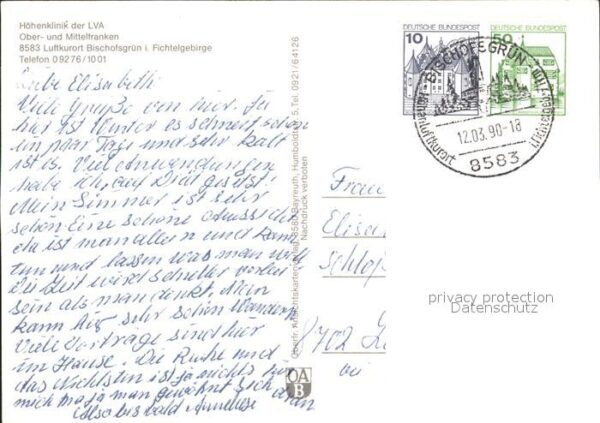 Höhenklinik der LVA
Ober- und Mittelfranken
8583 Luftkurort Bischofsgrün i. Fichtelgebirge
Telefon 09276/1001
Liebe Elisabeth
Viele Grüße von hier.
hier ist Winter es schneit schon
ein paar Tage und sehr kalt
ist es. Viel Anwendungen
habe ich, auf Diät gesetzt!
Mein Zimmer ist sehr
schön Eine schöne Aussicht
da ist man allein und kann
tun und lassen was man will
Die Zeit wird schneller vorbei
sein als man denkt. Man
kann hier sehr schön Wandern
Viele Vorträge sind hier
im Hause. Die Ruhe und
das Nichtstun ist ja nichts für
mich na ja man gewöhnt sich dran
Also bis bald Anneliese
Verlag 8580 Bayreuth, Humboldtstr. 5, Tel. 0921/64126
Nachdruck verboten
OA
B
DEUTSCHE BUNDESPOST
10
DEUTSCHE BUNDESPOST
50
BISCHOFSGRÜN
Höhenluftkurort
12.03.90-18
8583
Frau
Schloß
privacy protection
Datenschutz
bei